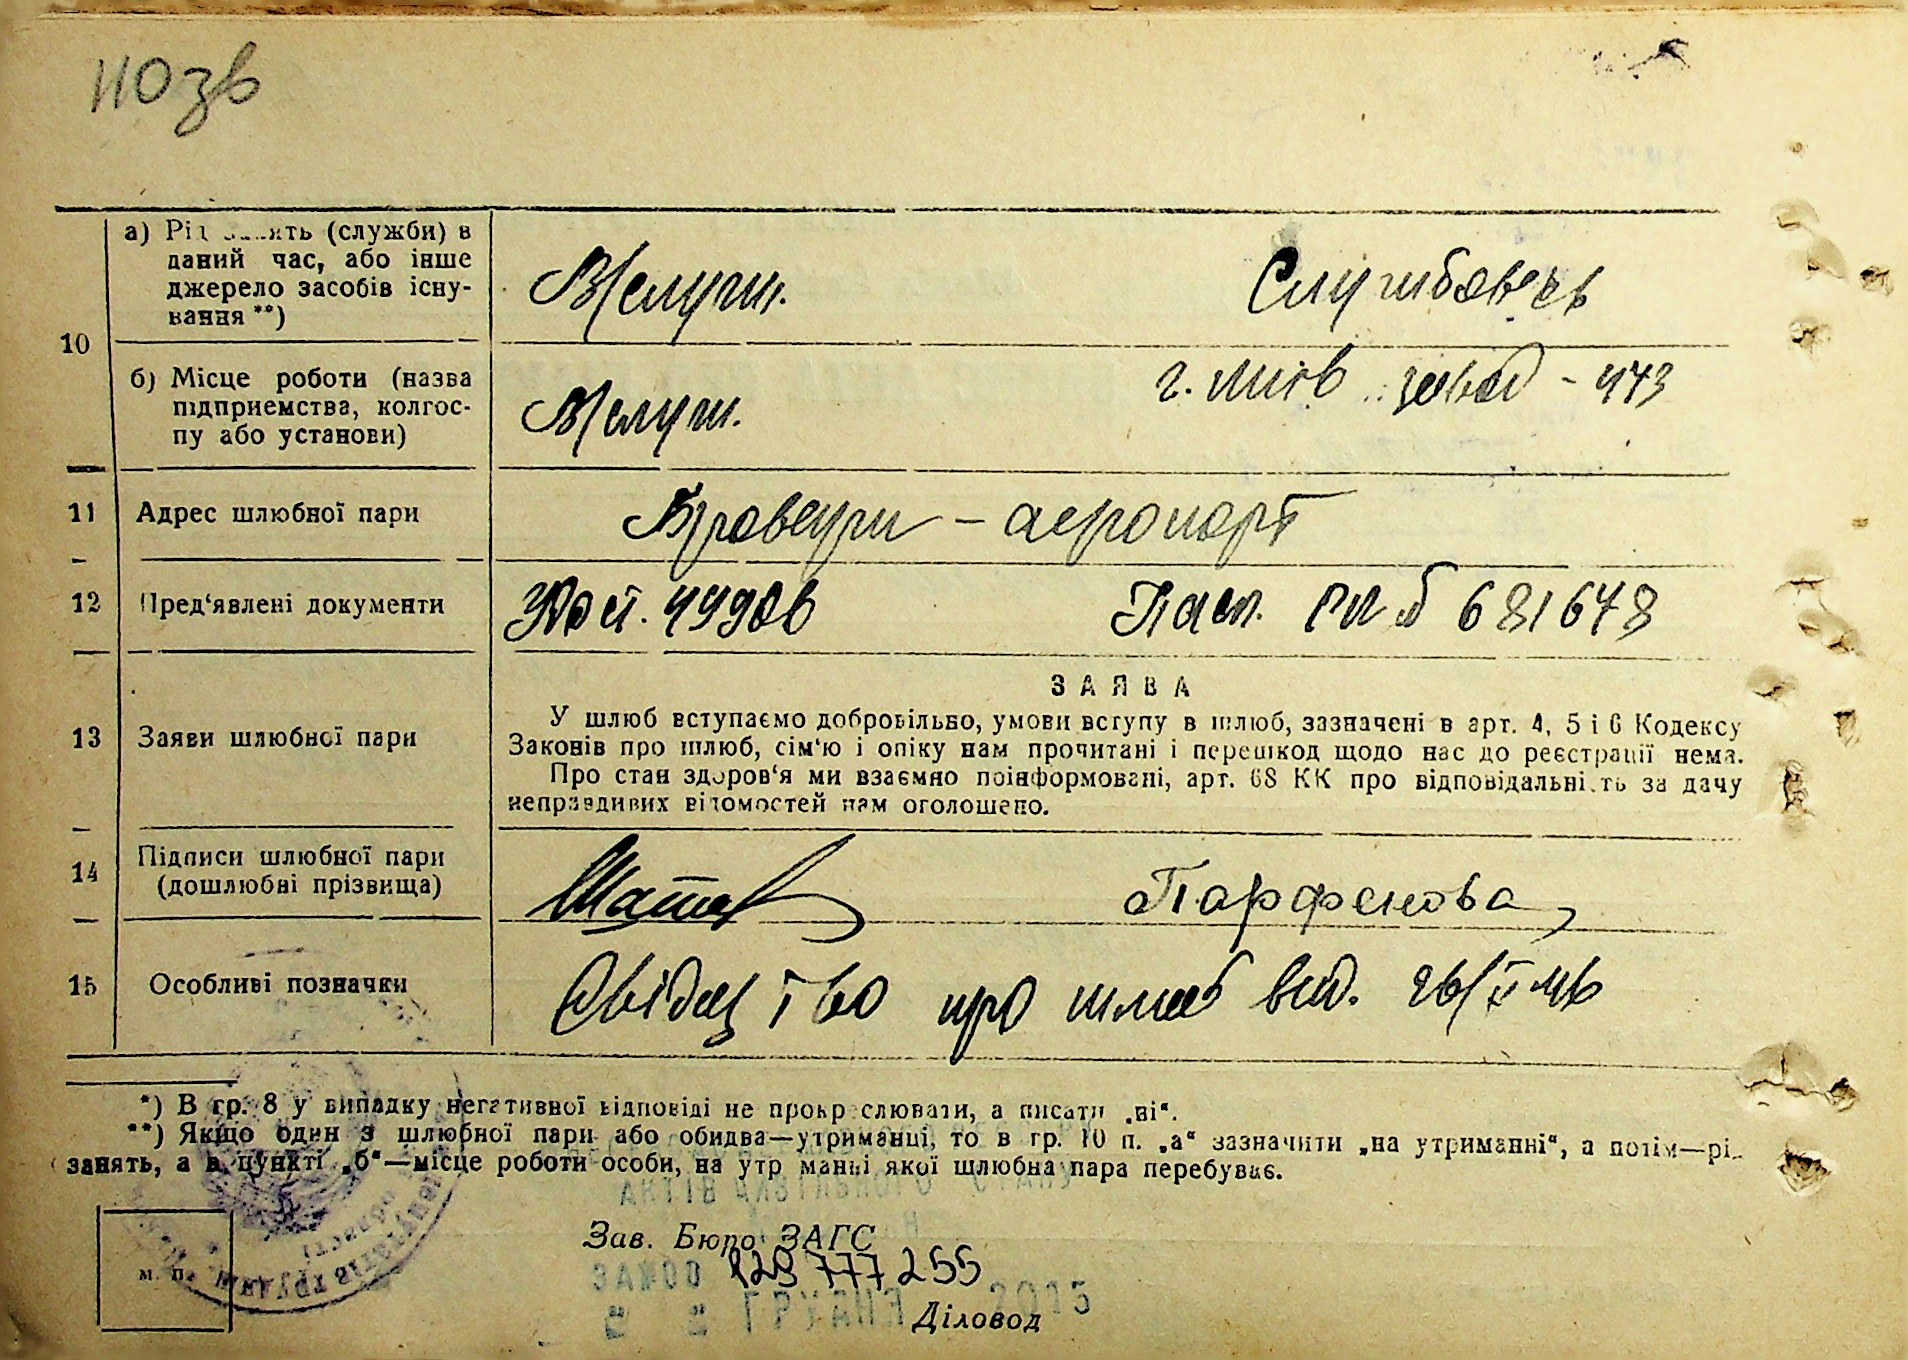 110 зв
а) Рід занять (служби) в
даний час, або інше
джерело засобів існу-
вання **)
Службовець
10
б) Місце роботи (назва
підприємства, колгос-
пу або установи)
г. Київ завод - 473
11 Адрес шлюбної пари
Бровари - аеропорт
12 Пред‘явлені документи
Пасп. 681648
ЗАЯВА
13 Заяви шлюбної пари
У шлюб вступаємо добровільно, умови вступу в шлюб, зазначені в арт. 4, 5 і 6 Кодексу
Законів про шлюб, сім‘ю і опіку нам прочитані і перешкод щодо нас до реєстрації нема.
Про стан здоров‘я ми взаємно поінформовані, арт. 68 КК про відповідальність за дачу
неправдивих відомостей нам оголошено.
14 Підписи шлюбної пари
(дошлюбні прізвища)
Парфенова
15 Особливі позначки
Свідоцтво про шлюб вид.
*) В гр. 8 у випадку негативної відповіді не прокреслювати, а писати „ні“.
**) Якщо один з шлюбної пари або обидва—утриманці, то в гр. 10 п. „а“ зазначити „на утриманні“, а потім—рід
занять, а в пункті „б“—місце роботи особи, на утриманні якої шлюбна пара перебуває.
АКТІВ ЦИВІЛЬНОГО СТАНУ
Зав. Бюро ЗАГС
129 777 255
ГРУДНЯ 2015
м. п.
Діловод